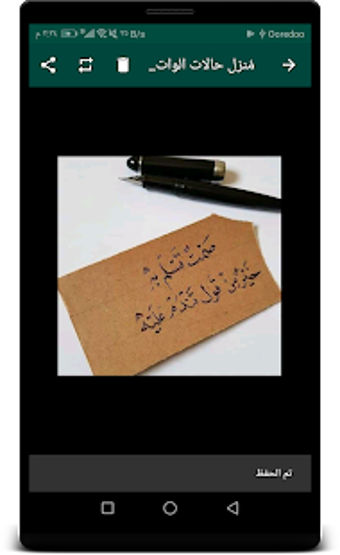 Ooredoo
مُنزل حالات الوات..
صَمْتٌ تَسْلَم بِهْ
خَيْرٌ مِنْ قَولٍ تَنْدَمُ عَلَيْهْ
تم الحفظ